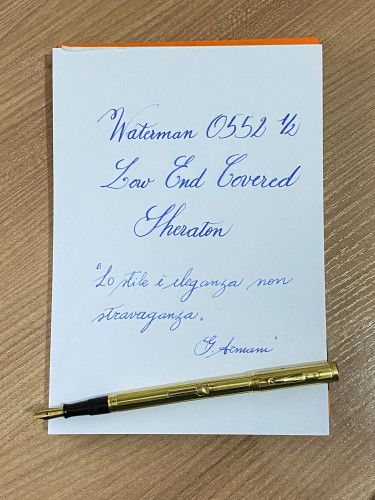 Waterman 0552 1/2
Low End Covered
Sheraton
"Lo stile è eleganza non
stravaganza.
G. Armani